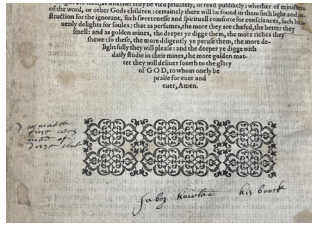 of the word, or other Gods children: certainely there will be found in them such light and in-
struction for the ignorant, such sweetenesse and spirituall comforts for consciences, such hea-
uenly delights for soules: that as perfumes, the more they are chafed, the better they
smell: and as golden mines, the deeper ye digge them, the more riches they
shewe: so these, the more diligently ye peruse them, the more de-
lightfully they will please: and the deeper ye digge with
daily studie in their mines, the more golden mat-
ter they will deliuer foorth to the glory
of GOD, to whom onely be
praise for euer and
euer, Amen.
his boock